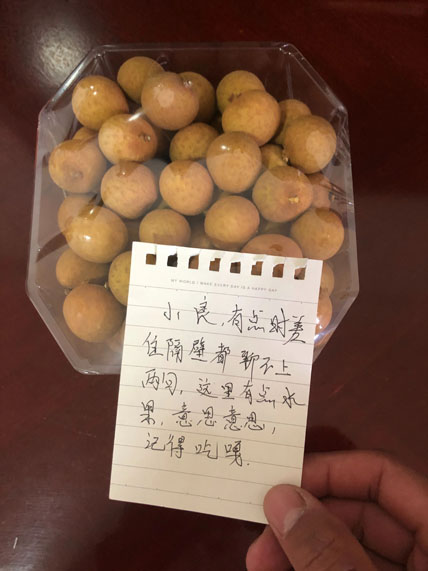 MY WORLD! MAKE EVERY DAY IS A HAPPY DAY
小良,有点时差
住隔壁都聊不上
两句,这里有点水
果,意思意思,
记得吃嘎.